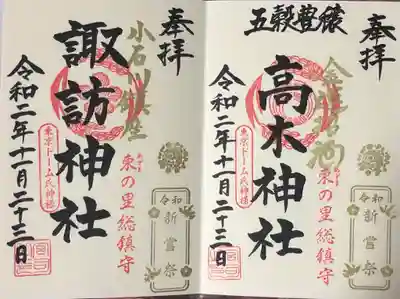 五穀豊穣
奉拝
高木神社
令和二年十一月二十三日
東京ドーム氏神様
東の里総鎮守
令和
新嘗祭
奉拝
小石川鎮座
諏訪神社
令和二年十一月二十三日
東京ドーム氏神様
東の里総鎮守
令和
新嘗祭